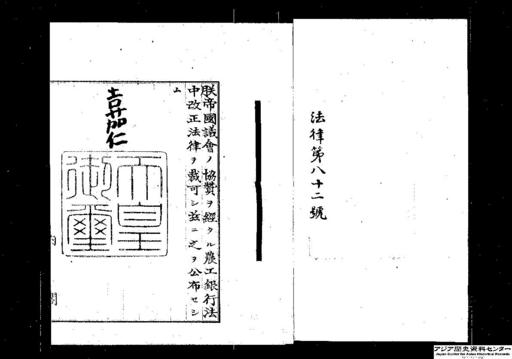 法律第八十二號
朕帝國議會ノ協贊ヲ經タル農工銀行法
中改正法律ヲ裁可シ茲ニ之ヲ公布セシ
ム
嘉仁
天皇
御璽
內閣
アジア歴史資料センター
Japan Center for Asian Historical Records